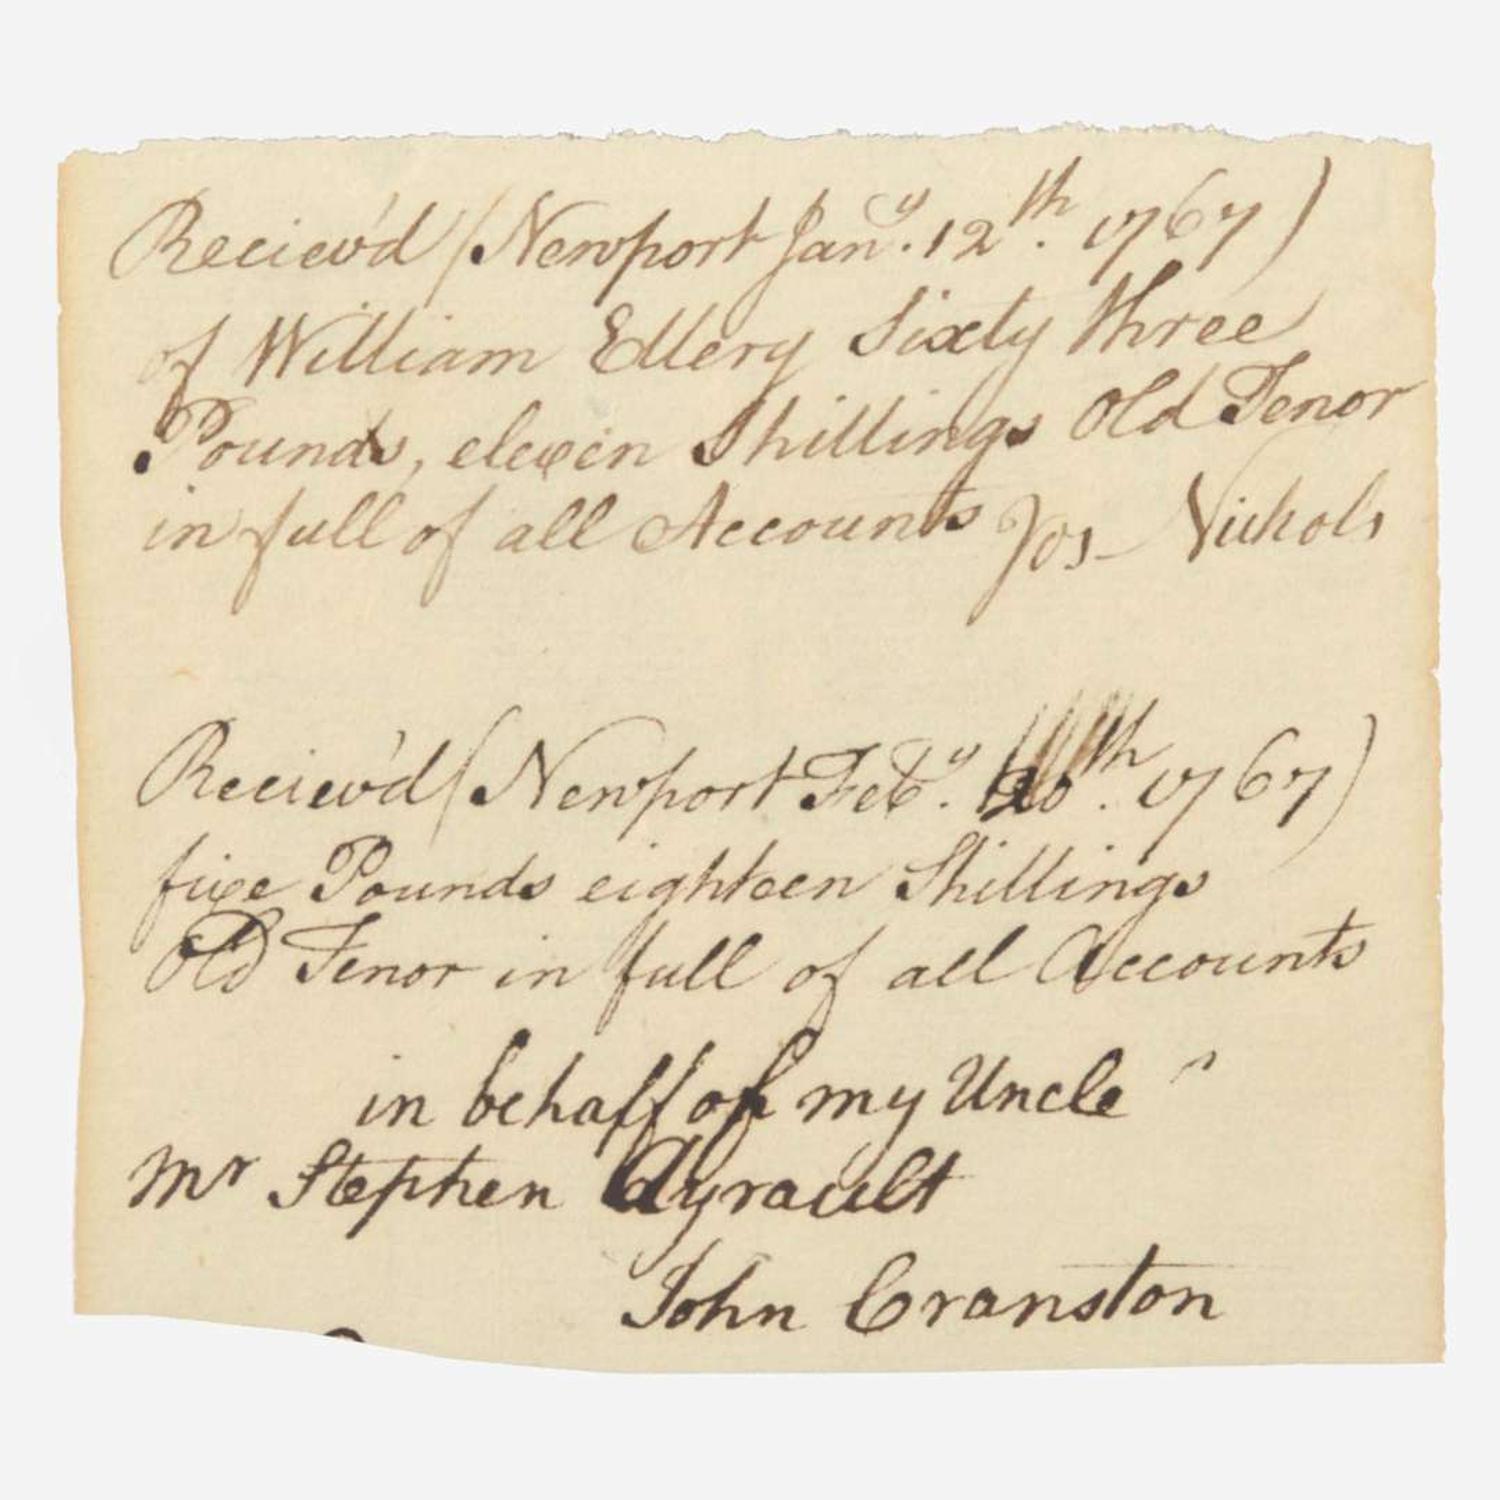 Reciev'd (Newport Jan.y 12th. 1767)
of William Ellery Sixty three
Pounds, eleven Shillings Old Tenor
in full of all Accounts Jos Nichols
Reciev'd (Newport Feb.y th. 1767)
five Pounds eighteen Shillings
Old Tenor in full of all Accounts
in behalf of my Uncle
Mr Stephen Ayrault
John Cranston